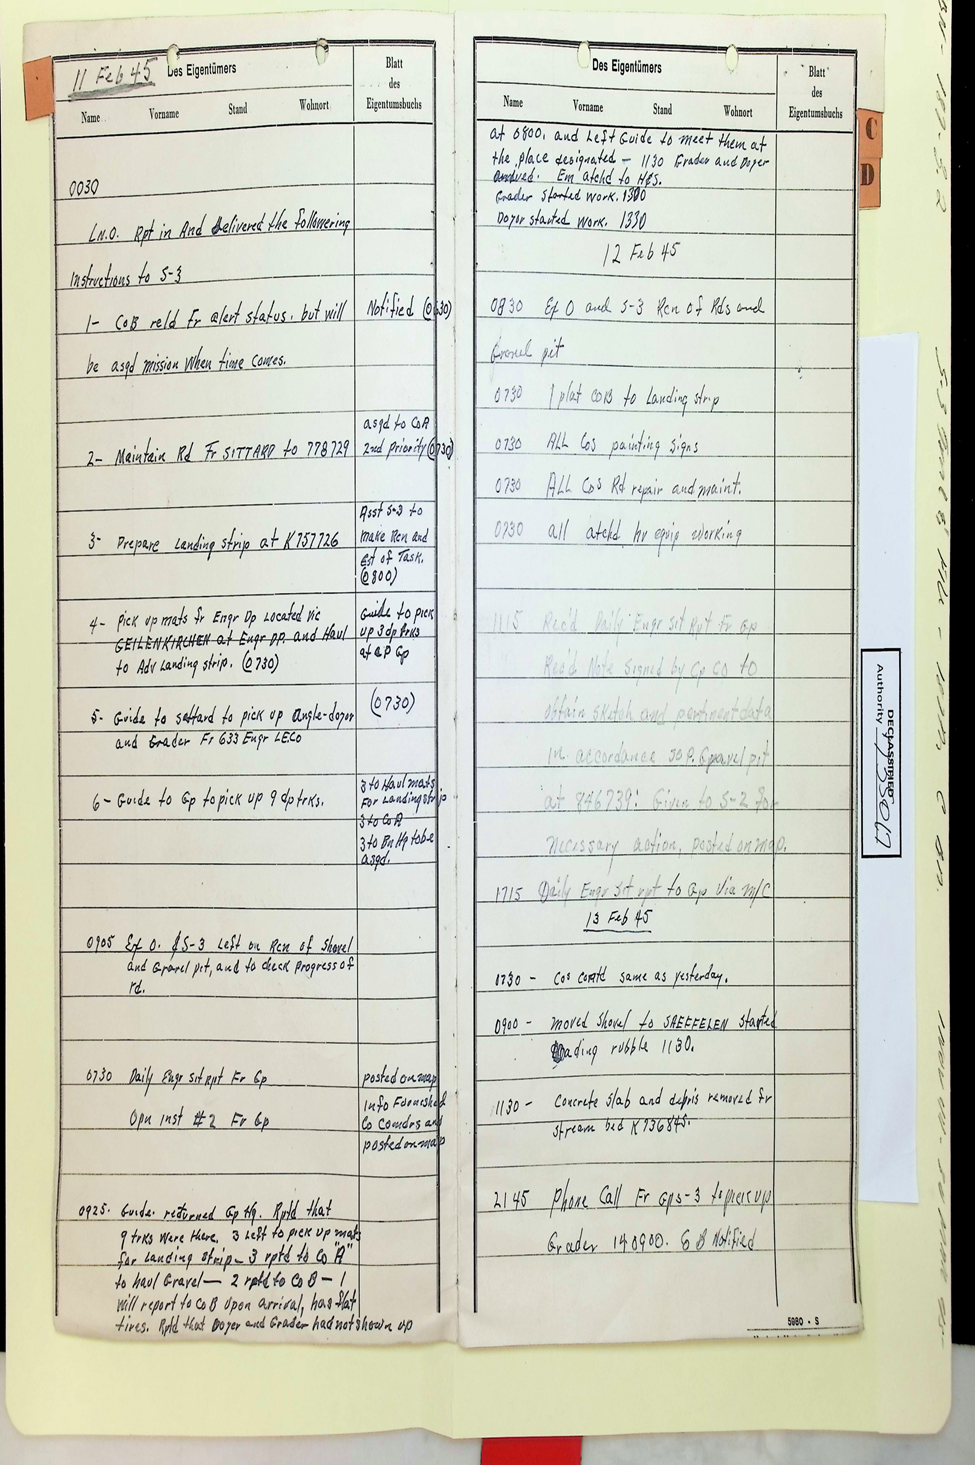 11 Feb 45
Des Eigentümers
Blatt
des
Eigentumsbuchs
Name Vorname Stand Wohnort
0030
Ln.O. Rpt in And Delivered the following
Instructions to S-3
1- CoB reld Fr alert status, but will
Notified (0630)
be asgd mission When time Comes.
asgd to CoA
2- Maintain Rd Fr SITTARD to 778729
2nd Priority (0730)
Asst S-3 to
3- Prepare Landing strip at K757726
make Rcn and
Est of Task.
(0800)
4- Pick up mats fr Engr Dp Located Vic
GEILENKIRCHEN at Engr DP. and Haul
to Adv Landing strip. (0730)
Guide to pick
up 3 dp trks
at GP Gp
(0730)
5- Guide to sittard to pick up angle-dozer
and Grader Fr 633 Engr LECo
6- Guide to Gp to pick up 9 dp trks.
3 to Haul mats
For Landing strip
3 to CoA
3 to Bn Hp to be
asgd.
0905 Ex O. & S-3 Left on Rcn of Shovel
and Gravel pit, and to check progress of
rd.
0730 Daily Engr sit rpt Fr Gp
posted on map
Opn inst #2 Fr Gp
Info Furnished
Co Comdrs and
posted on map
0925. Guide returned Gp Hq. Rptd that
9 trks were there. 3 Left to pick up mats
for Landing strip - 3 rptd to Co "A"
to haul Gravel — 2 rptd to Co B - 1
will report to CoB upon arrival, has flat
tires. Rptd that Dozer and Grader had not shown up
Des Eigentümers
Blatt
des
Eigentumsbuchs
Name Vorname Stand Wohnort
at 0800, and Left Guide to meet them at
the place designated - 1130 Grader and Dozer
arrived. Em atchd to H&S.
Grader Started Work. 1300
Dozer started Work. 1330
12 Feb 45
0830 Ex O and S-3 Rcn of Rds and
Gravel pit
0730 1 plat CoB to Landing strip
0730 ALL Cos painting signs
0730 ALL Cos Rd repair and maint.
0730 all atchd hv equip working
1115 Rec'd Daily Engr sit Rpt Fr Gp
Rec'd Note signed by Gp CO to
obtain sketch and pertinent data
in accordance SOP. Gravel pit
at 846739: Given to S-2 for
necessary action, posted on map.
1715 Daily Engr sit rpt to Gp Via M/C
13 Feb 45
0730 - Cos Contd same as yesterday.
0900 - Moved Shovel to SAEFFELEN started
loading rubble 1130.
1130 - Concrete slab and depris removed fr
stream bed K736845.
2145 Phone Call Fr Gp S-3 to pick up
Grader 140900. Notified
5980 - S
C
D
DECLASSIFIED
Authority 735017